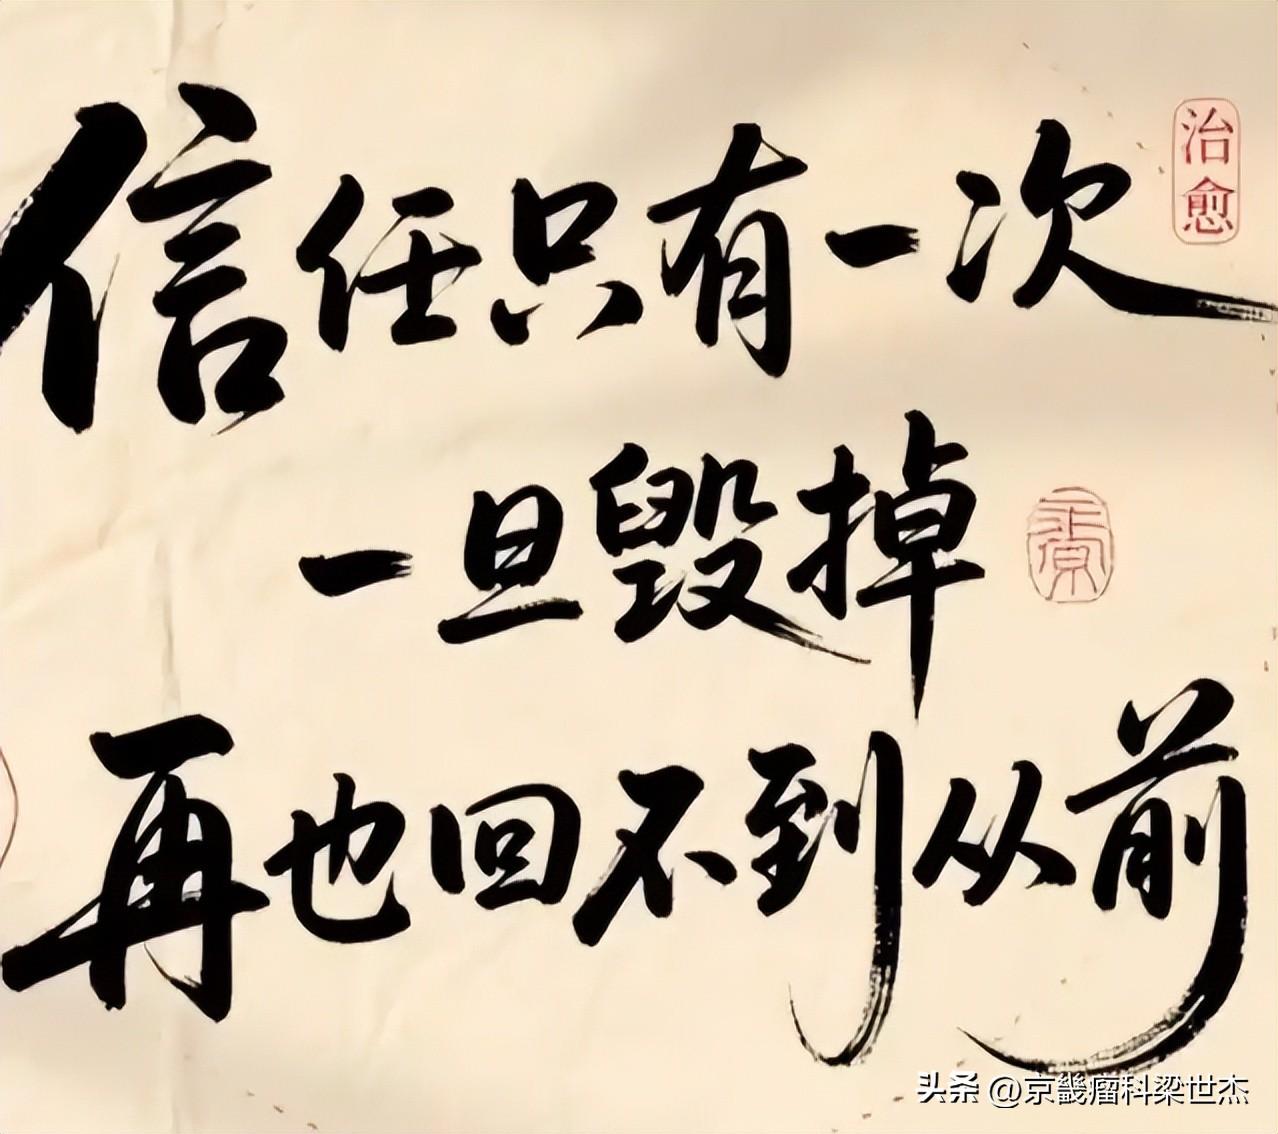 信任只有一次
治愈
一旦毁掉
再也回不到从前
头条 @京畿瘤科梁世杰